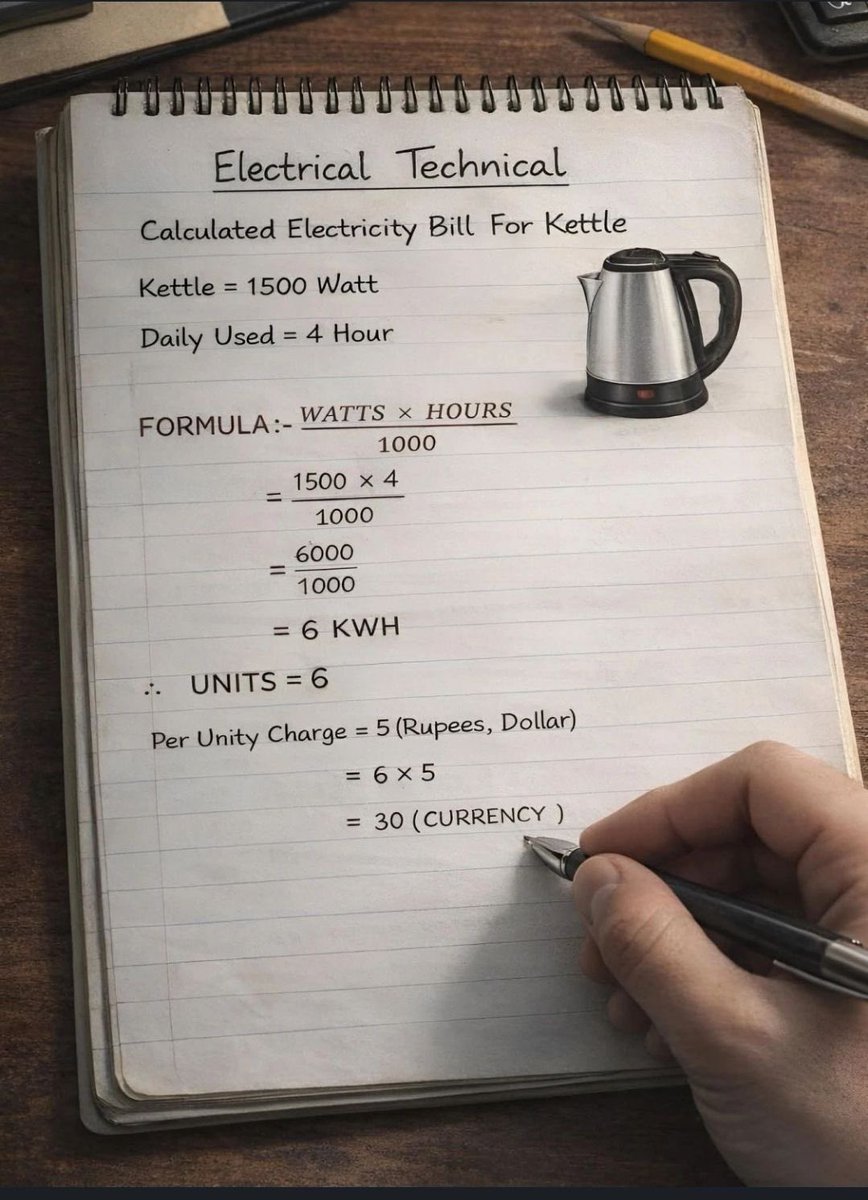 Electrical Technical
Calculated Electricity Bill For Kettle
Kettle = 1500 Watt
Daily Used = 4 Hour
FORMULA:- WATTS × HOURS
1000
= 1500 × 4
1000
= 6000
1000
= 6 KWH
∴ UNITS = 6
Per Unity Charge = 5 (Rupees, Dollar)
= 6 × 5
= 30 (CURRENCY )